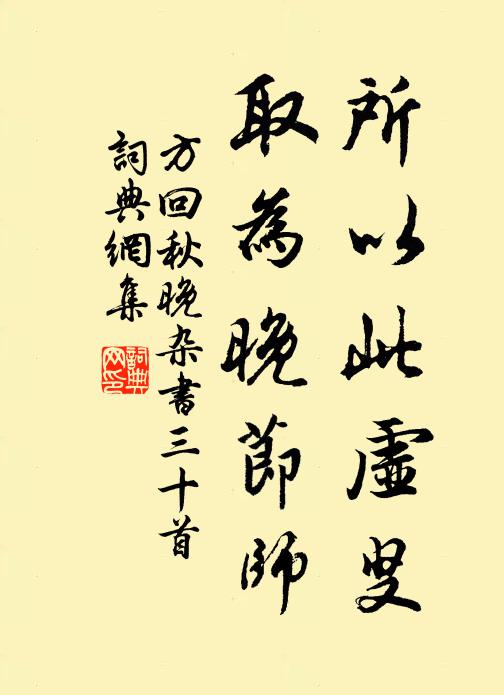 所以此虛叟
取為晚節師
方回秋晚杂書三十首
詞典網集
詞典網印